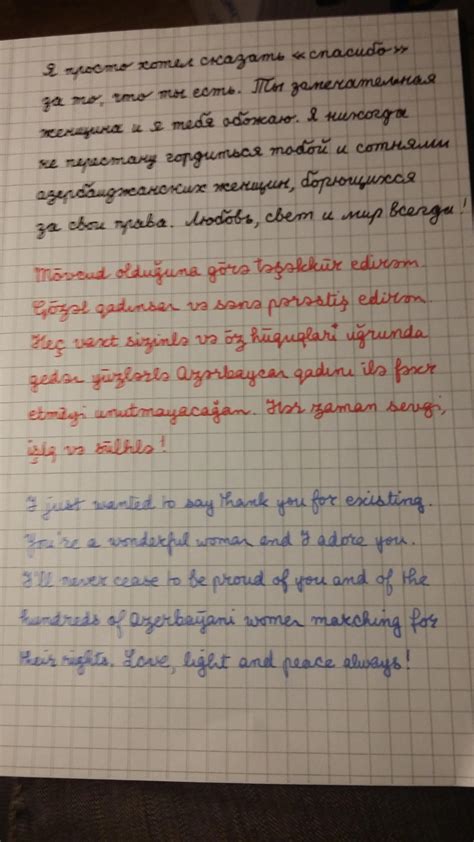 Я просто хотел сказать «спасибо»
за то, что ты есть. Ты замечательная
женщина и я тебя обожаю. Я никогда
не перестану гордиться тобой и сотнями
азербайджанских женщин, борющихся
за свои права. Любовь, свет и мир всегда!
Mövcud olduğuna görə təşəkkür edirəm.
Gözəl qadınsan və sənə pərəstiş edirəm.
Heç vaxt sizinlə və öz hüquqları uğrunda
gedən yüzlərlə Azərbaycan qadını ilə fəxr
etməyi unutmayacağam. Hər zaman sevgi,
işlç və sülhlə!
I just wanted to say thank you for existing.
You're a wonderful woman and I adore you.
I'll never cease to be proud of you and of the
hundreds of Azerbaijani women marching for
their rights. Love, light and peace always!